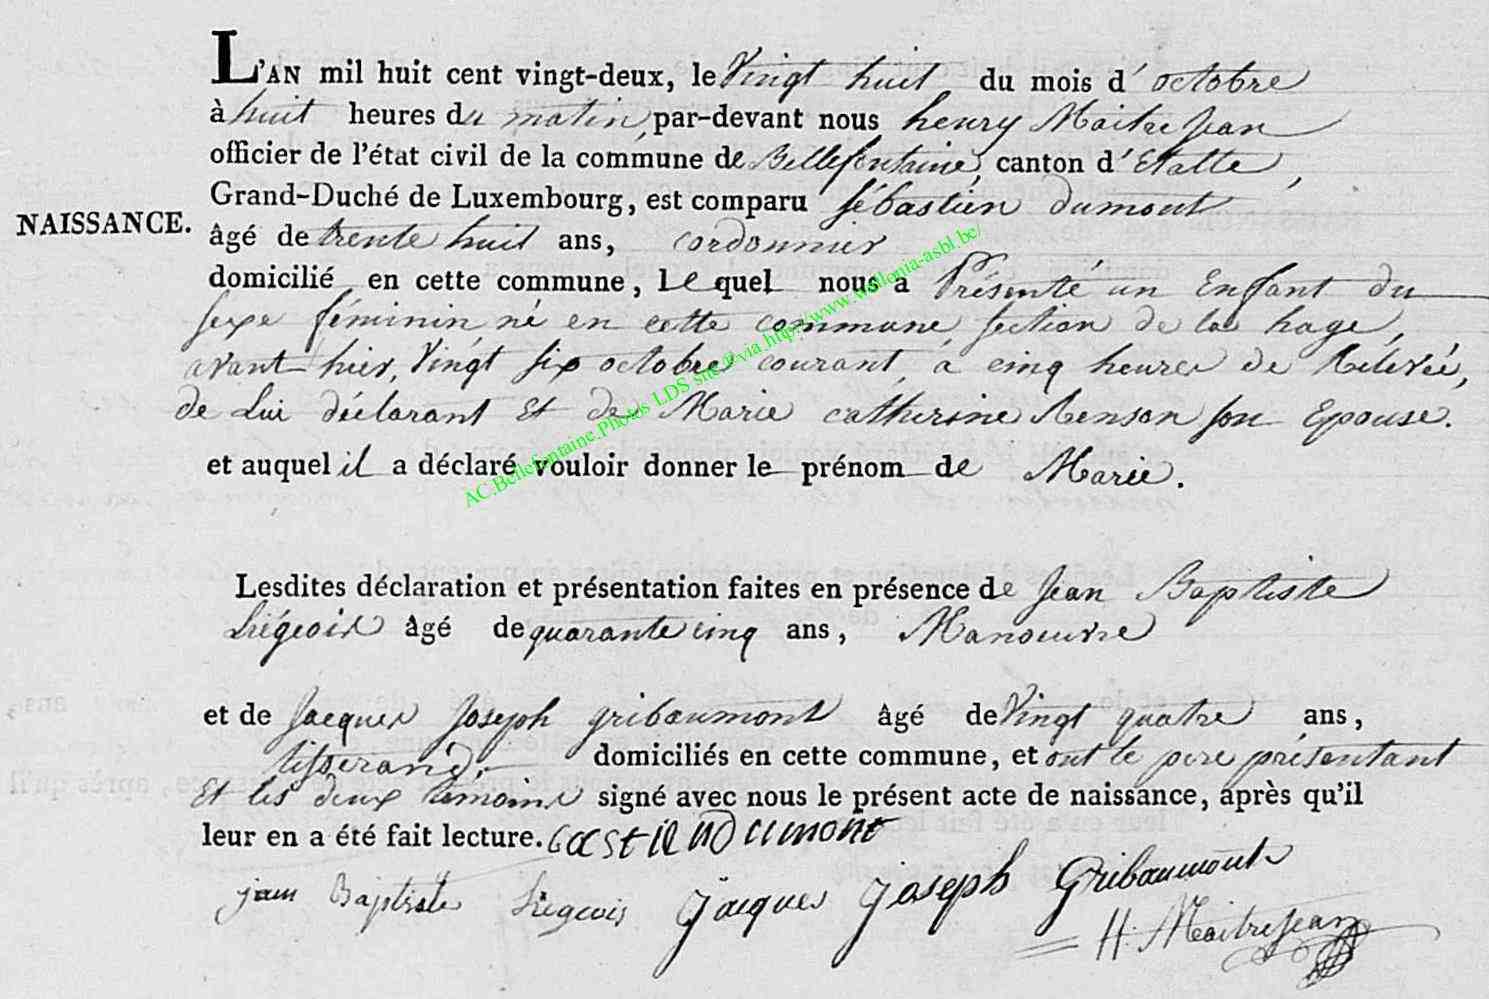 L'AN mil huit cent vingt-deux, le Vingt huit du mois d'octobre
à huit heures du matin, par-devant nous henry Maitrejean
officier de l'état civil de la commune de Bellefontaine, canton d'Etalle,
Grand-Duché de Luxembourg, est comparu sébastien dumont
NAISSANCE.
âgé de trente huit ans, cordonnier
domicilié en cette commune, Lequel nous a Présenté un Enfant du
sexe féminin né en cette commune section de la hage,
avant hier, Vingt six octobre courant, à cinq heures de Relevée,
de Lui déclarant Et de Marie catherine Renson son Epouse.
et auquel il a déclaré vouloir donner le prénom de Marie.
AC.Bellefontaine.Photos LDS site via http://www.wallonia-asbl.be/
Lesdites déclaration et présentation faites en présence de Jean Baptiste
Liégeois âgé de quarante cinq ans, Manoeuvre
et de Jacques Joseph gribaumont âgé de Vingt quatre ans,
tisserand, domiciliés en cette commune, et ont le pere présentant
Et les deux témoins signé avec nous le présent acte de naissance, après qu'il
leur en a été fait lecture. Bastien Dumont
jean Baptiste Liegeois Jacques Joseph Gribaumont
H. Maitrejean